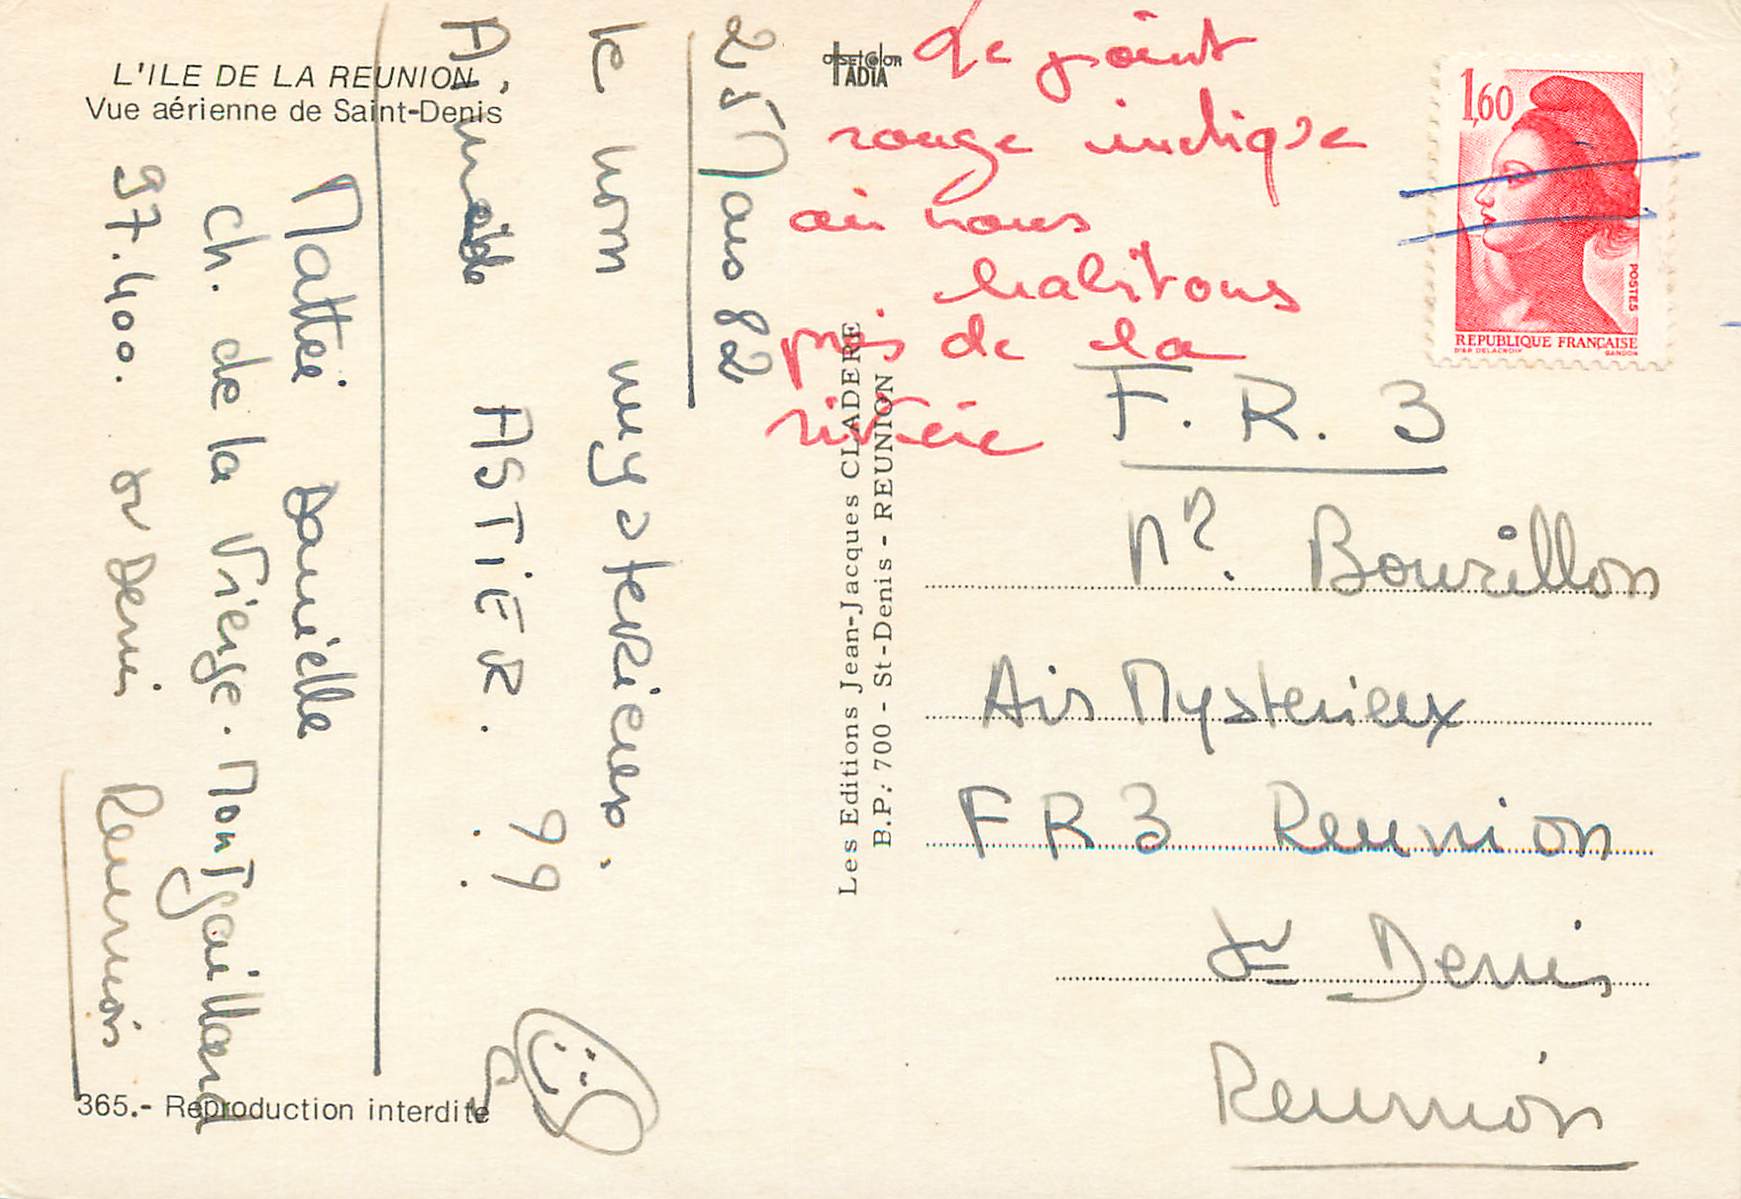 L'ILE DE LA REUNION
Vue aérienne de Saint-Denis
25 Mars 82
le nom mysterieux.
ASTIER. 99
Mattei Danielle
ch. de la Vierge. Montgaillard
97.400. St Denis Reunion
365.- Reproduction interdite
OffSETCOlOR
TADIA
Les Editions Jean-Jacques CLADERE
B.P. 700 - St-Denis - REUNION
Le point
rouge indique
où nous
habitons
près de la
rivière
1,60
POSTES
REPUBLIQUE FRANÇAISE
D'AP. DELACROIX GANDON
F.R.3
Mr. Bourillon
Air Mysterieux
FR3 Reunion
St Denis
Reunion